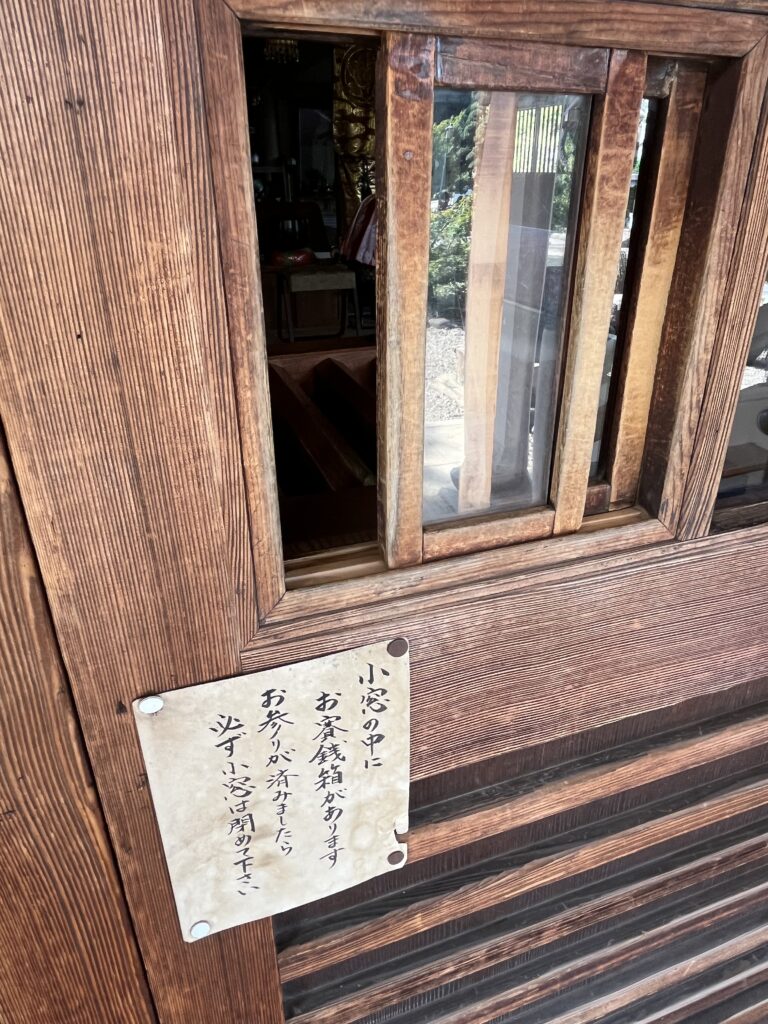 小窓の中に
お賽銭箱があります
お参りが済みましたら
必ず小窓は閉めて下さい